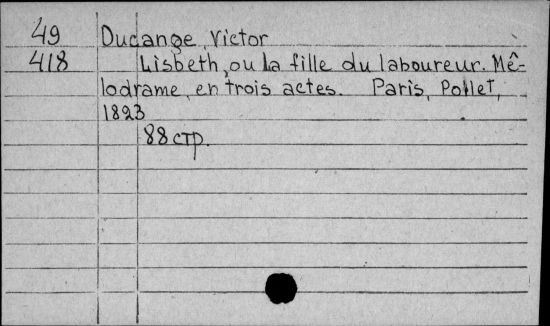 49 Ducange, Victor
418 Lisbeth, ou la fille du laboureur. Mê-
lodrame, en trois actes. Paris, Pollet,
1823
88 стр.